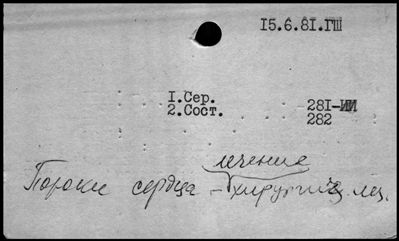 15.6.81.ГШ
1.Сер. 281-ИИ
2.Сост. 282
лечение
Пороки сердца - хирургич. леч.